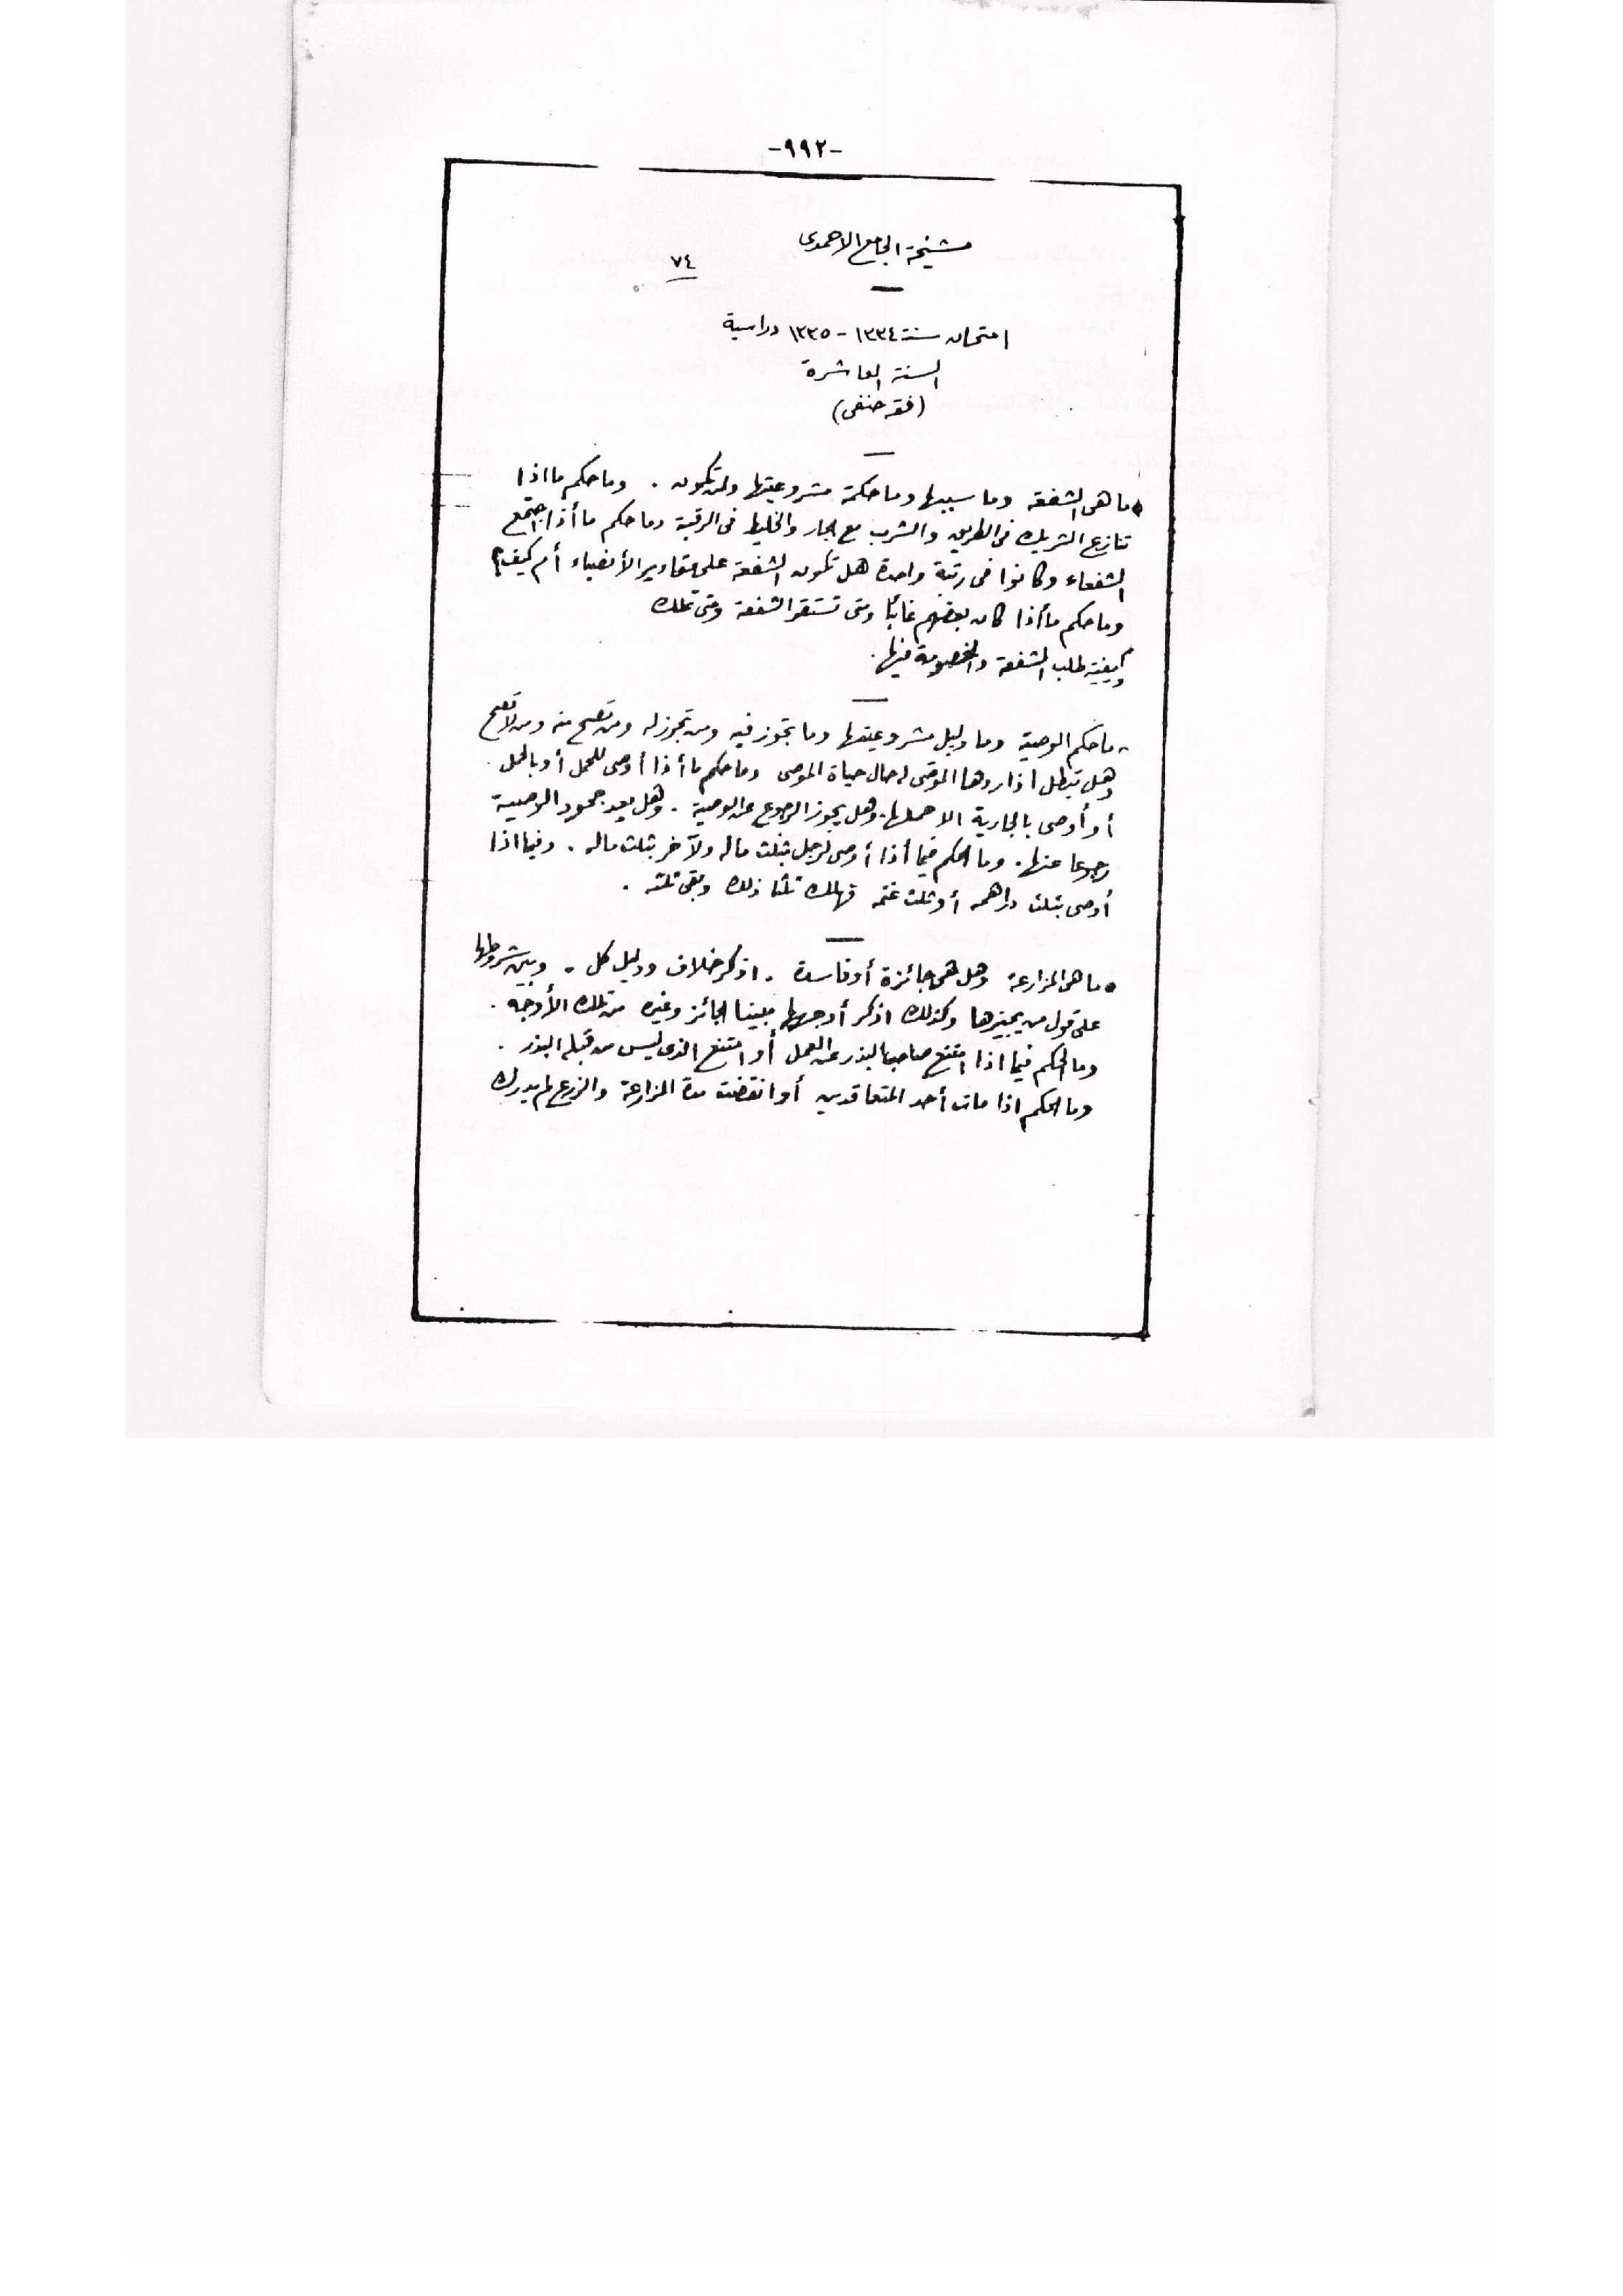 -٩٩٢-
مشيخة الجامع الاحمدى
٧٤
امتحان سنة ١٣٣٤ - ١٣٣٥ دراسية
السنة العاشرة
(فقه حنفى)
ما هى الشفعة وما سببها وما حكمة مشروعيتها ولمن تكون . وما حكم ما اذا
تنازع الشريك فى الطريق والشرب مع الجار والخليط فى الرقبة وما حكم ما أذا اجتمع
الشفعاء وكانوا فى رتبة واحدة هل تكون الشفعة على مقادير الأنصباء أم كيف؟
وما حكم ما أذا كان بعضهم غائبا ومتى تستقر الشفعة ومتى تملك
وكيفية طلب الشفعة والخصومة فيها .
- ما حكم الوصية وما دليل مشروعيتها وما تجوز فيه ومن تجوز له ومن تصح منه ومن لا تصح
وهل تبطل اذا ردها الموصى له حال حياة الموصى وما حكم ما أذا أوصى للحمل أو بالحمل .
أو أوصى بالجارية الا حملها . وهل يجوز الرجوع عن الوصية . وهل يعد جحود الوصية
رجوعا عنها . وما الحكم فيما أذا أوصى لرجل بثلث ماله ولآخر بثلث ماله . وفيما اذا
أوصى بثلث دراهمه أو ثلث غنمه فهلك ثلثا ذلك وبقى ثلثه .
• ما هى المزارعة وهل هى جائزة أو فاسدة . اذكر خلاف ودليل كل . وبين شروطها
على قول من يجيزها وكذلك اذكر أوجهها مبينا الجائز وغيره من تلك الأوجه .
وما الحكم فيما اذا امتنع صاحب البذر عن العمل أو امتنع الذى ليس من قبله البذر .
وما الحكم اذا مات أحد المتعاقدين أو انقضت مدة المزارعة والزرع لم يدرك